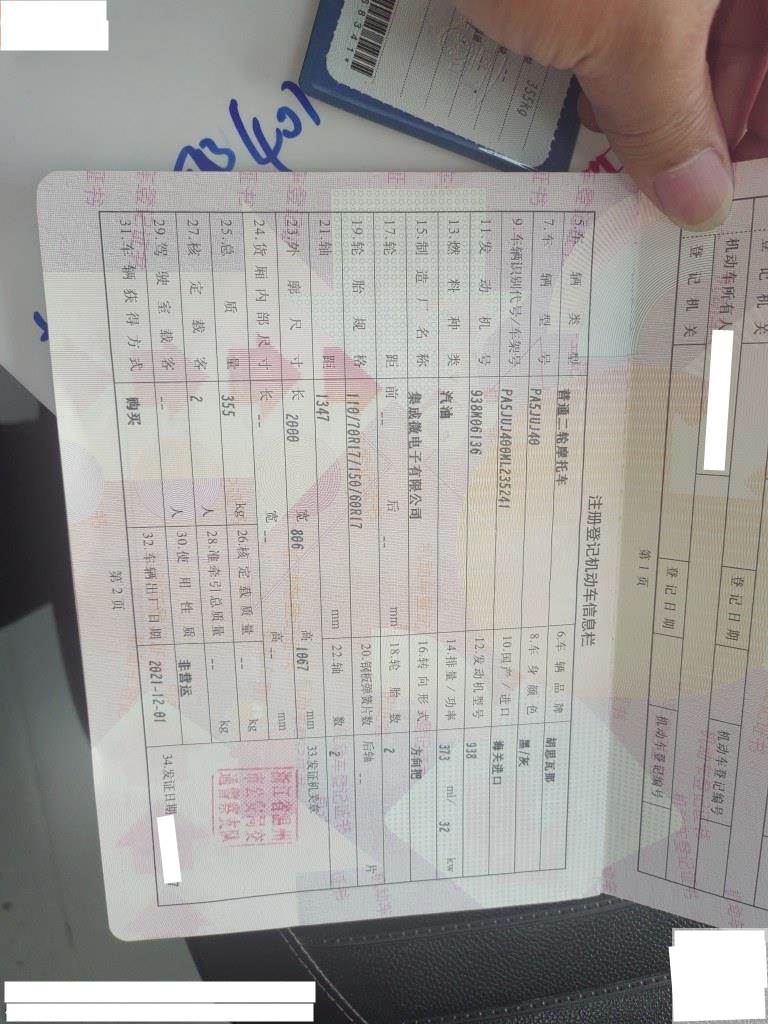 注册登记机动车信息栏
5.车辆类型 普通二轮摩托车 6.车辆品牌 胡思瓦那
7.车辆型号 PA5JUJ40 8.车身颜色 黑/灰
9.车辆识别代号/车架号 PA5JUJ400ML235241 10.国产/进口 海关进口
11.发动机号 938M06136 12.发动机型号 938
13.燃料种类 汽油 14.排量/功率 373 ml/ 32 kw
15.制造厂名称 集成微电子有限公司 16.转向形式 方向把
17.轮距 前 -- 后 -- mm 18.轮胎数 2
19.轮胎规格 110/70R17/150/60R17 20.钢板弹簧片数 后轴 -- 片
21.轴距 1347 mm 22.轴数 2
23.外廓尺寸 长 2000 宽 806 高 1067 mm 33.发证机关章
24.货厢内部尺寸 长 -- 宽 -- 高 -- mm
25.总质量 355 kg 26.核定载质量 -- kg
27.核定载客 2 人 28.准牵引总质量 -- kg
29.驾驶室载客 -- 人 30.使用性质 非营运
31.车辆获得方式 购买 32.车辆出厂日期 2021-12-01 34.发证日期
第2页
浙江省温州
市公安局交
通警察大队
机动车所有人
登记机关 登记日期 机动车登记编号
登记机关 登记日期 机动车登记编号
第1页
355kg